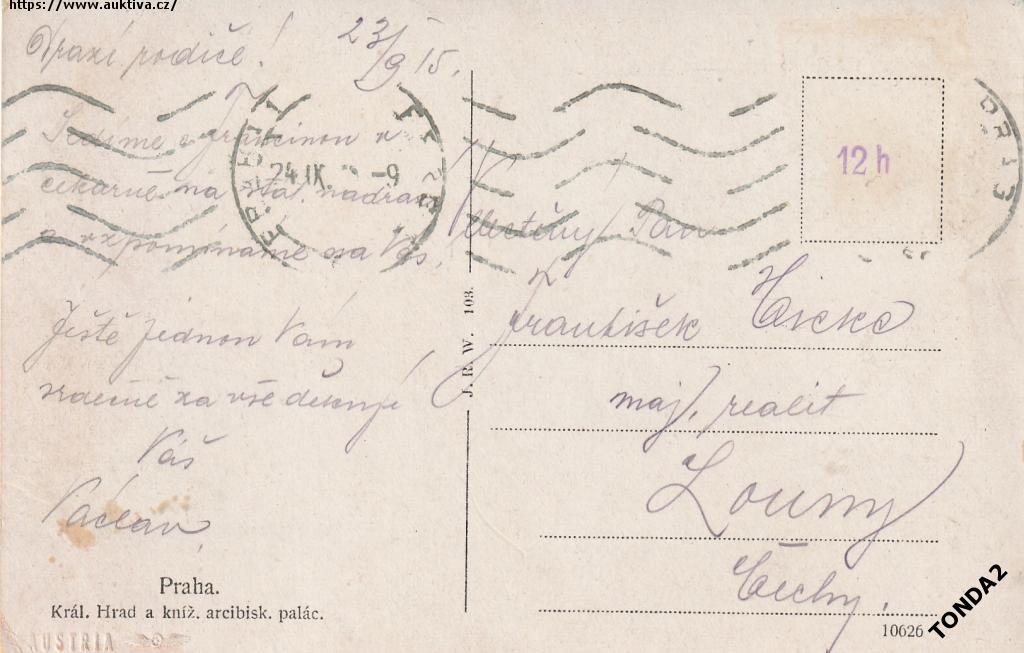 https://www.auktiva.cz/
Drazí rodiče!
23/9 15.
Sedíme s Francinou v
čekárně na stat. nádraží
a vzpomínáme na Vás.
Ještě jednou Vám
srdečně za vše děkuji
Váš
Václav
24.IX -9
12 h
Velectěný Pán
František
maj. realit
Louny
Čechy.
J. R. W. 103.
Praha.
Král. Hrad a kníž. arcibisk. palác.
AUSTRIA
10626
TONDA2